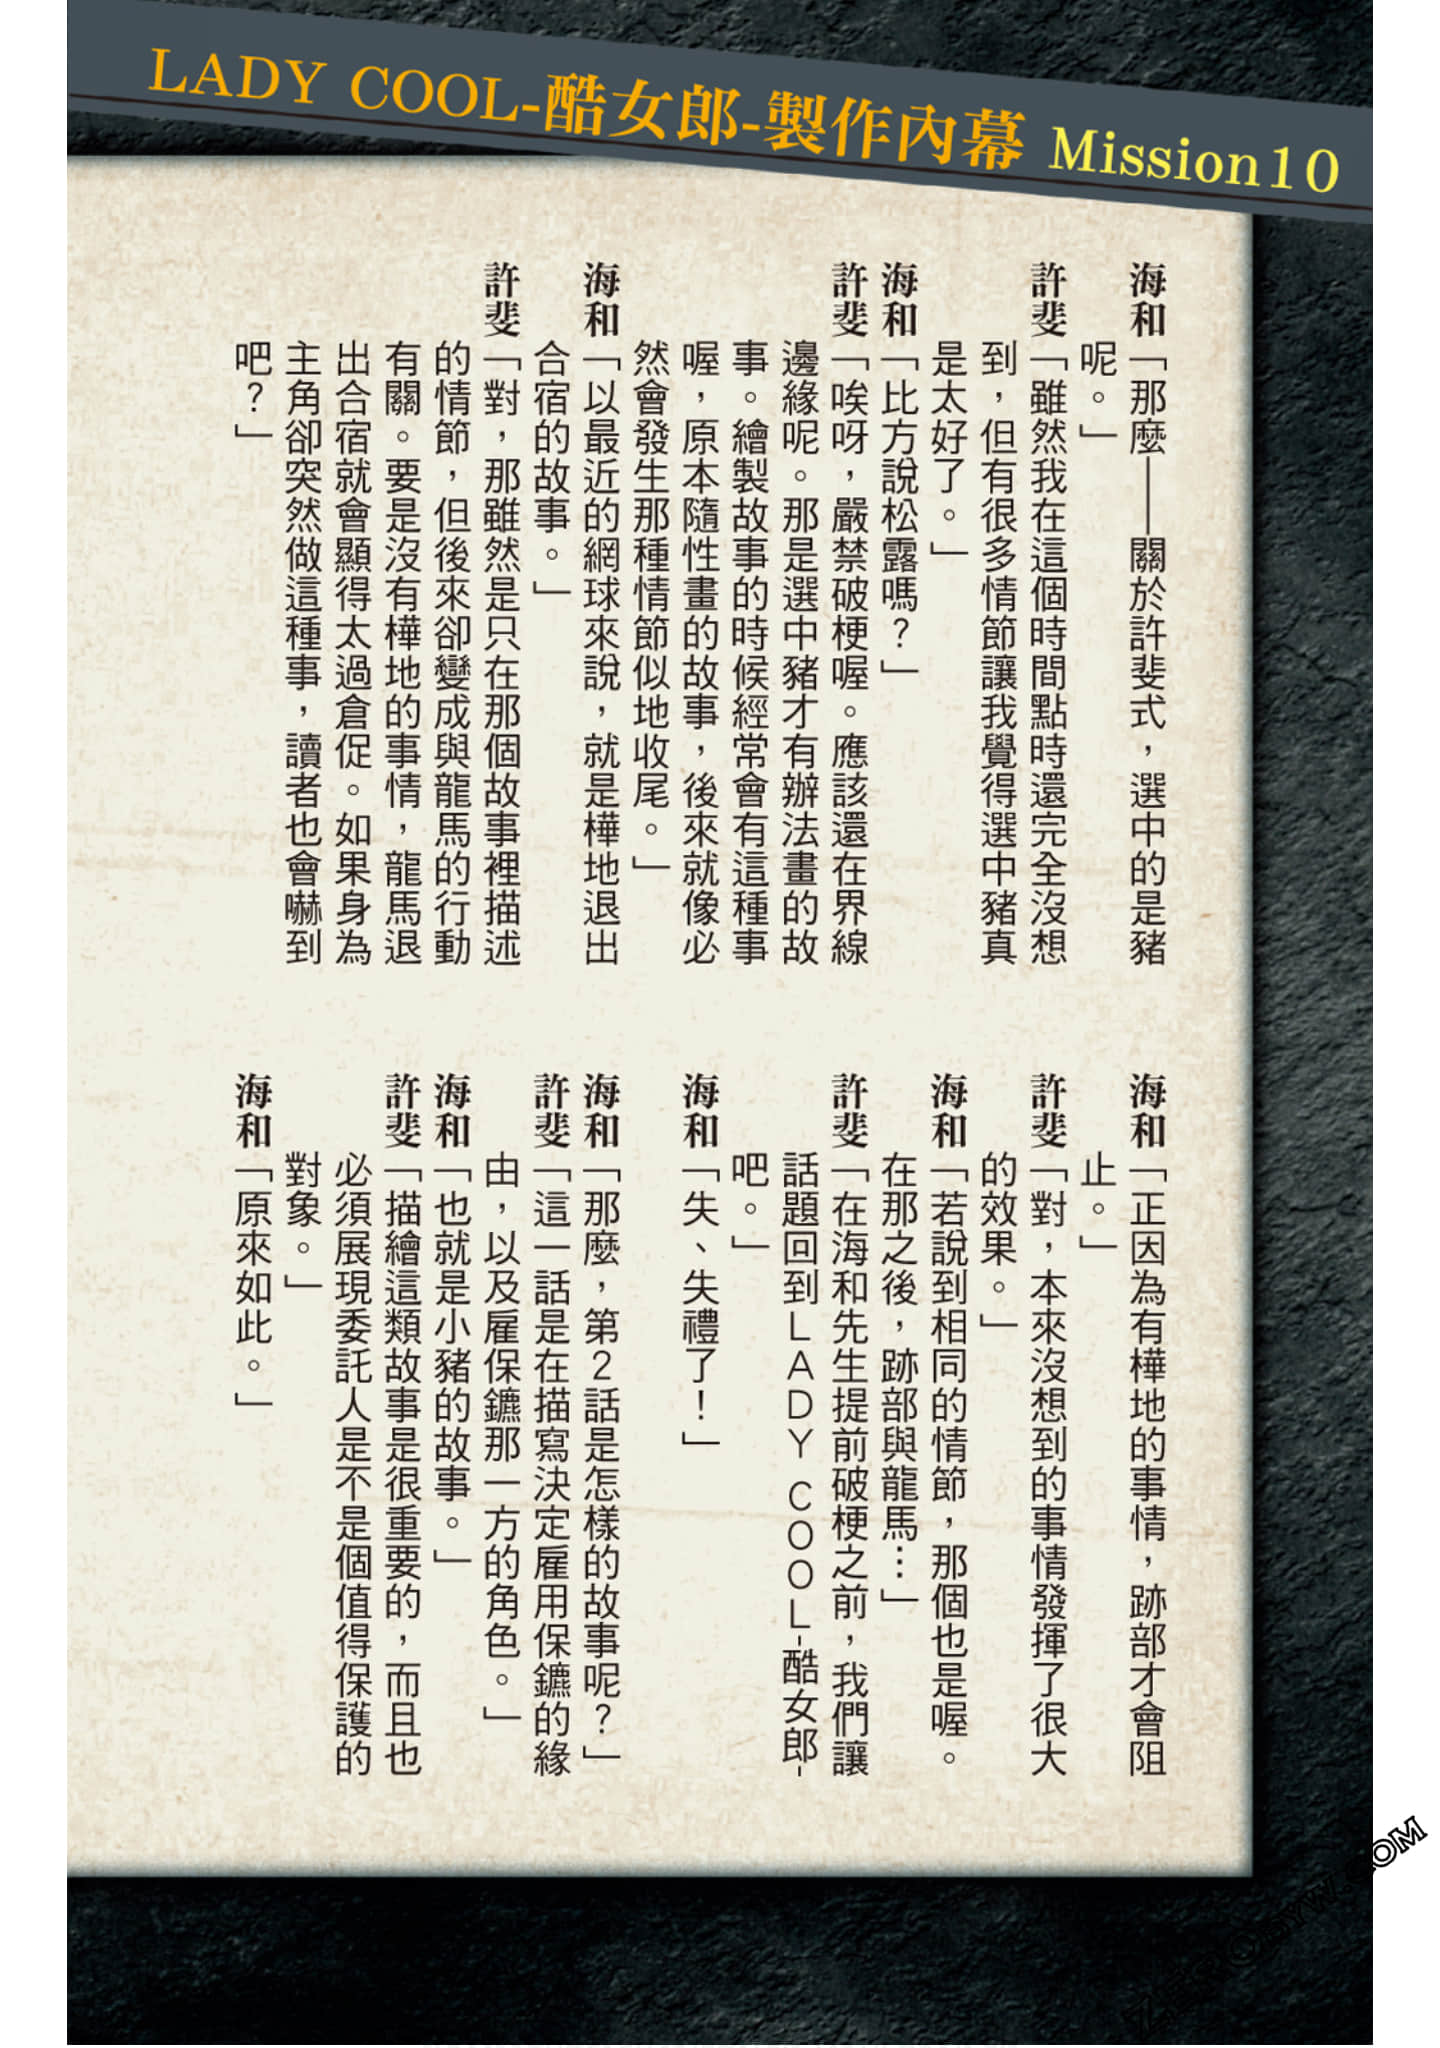 LADY COOL-酷女郎-製作內幕 Mission10
海和「那麼——關於許斐式，選中的是豬
呢。」
許斐「雖然我在這個時間點時還完全沒想
到，但有很多情節讓我覺得選中豬真
是太好了。」
海和「比方說松露嗎？」
許斐「唉呀，嚴禁破梗喔。應該還在界線
邊緣呢。那是選中豬才有辦法畫的故
事。繪製故事的時候經常會有這種事
喔，原本隨性畫的故事，後來就像必
然會發生那種情節似地收尾。」
海和「以最近的網球來說，就是樺地退出
合宿的故事。」
許斐「對，那雖然是只在那個故事裡描述
的情節，但後來卻變成與龍馬的行動
有關。要是沒有樺地的事情，龍馬退
出合宿就會顯得太過倉促。如果身為
主角卻突然做這種事，讀者也會嚇到
吧？」
海和「正因為有樺地的事情，跡部才會阻
止。」
許斐「對，本來沒想到的事情發揮了很大
的效果。」
海和「若說到相同的情節，那個也是喔。
在那之後，跡部與龍馬…」
許斐「在海和先生提前破梗之前，我們讓
話題回到ＬＡＤＹ ＣＯＯＬ-酷女郎-
吧。」
海和「失、失禮了！」
海和「那麼，第２話是怎樣的故事呢？」
許斐「這一話是在描寫決定雇用保鑣的緣
由，以及雇保鑣那一方的角色。」
海和「也就是小豬的故事。」
許斐「描繪這類故事是很重要的，而且也
必須展現委託人是不是個值得保護的
對象。」
海和「原來如此。」